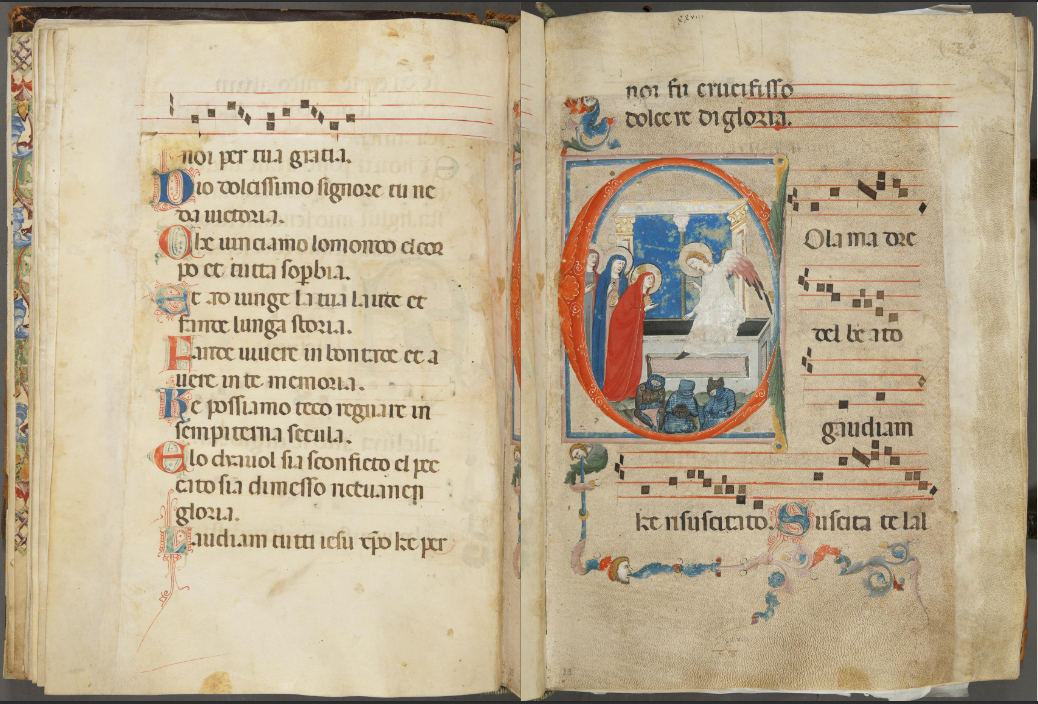 noi per tua gratia.
Dio dolcissimo signore tu ne
da uictoria.
Ke uinciamo lomondo el cor
po et tutta sopbia.
Et ato iunge la tua laude et
fante lunga storia.
Fante uiuere in bontade et a
uere in te memoria.
Ke possiamo teco regnare in
sempiterna secula.
Elo diauol sia sconficto el pec
cato sia dimesso
gloria.
Laudiam tutti iesu xpo ke per
xxviii
noi fu crucifisso
dolce re di gloria.
Co la ma dre
del be ato
gaudiam
ke risuscitato. Suscita te lal